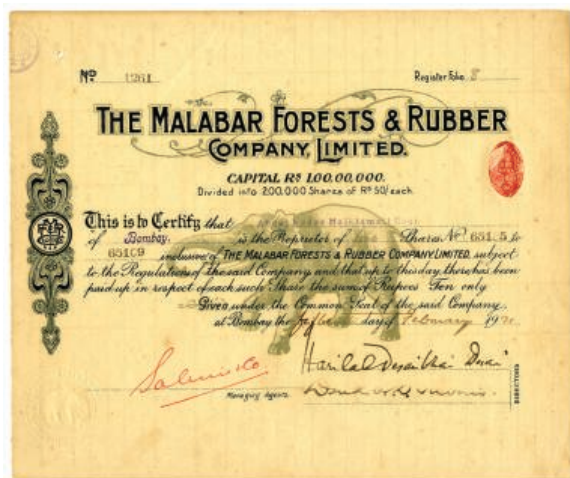 No 1261
Register Folio 8
THE MALABAR FORESTS & RUBBER
COMPANY, LIMITED.
CAPITAL RS 1,00,00,000.
Divided into 200,000 Shares of RS 50/ each
This is to Certify that
of Bombay. is the Proprietor of five Shares No 65105 to
65109 inclusive of THE MALABAR FORESTS & RUBBER COMPANY, LIMITED, subject
to the Regulations of the said Company and that up to this day there has been
paid up in respect of each such Share the sum of Rupees Ten only
Given under the Common Seal of the said Company,
at Bombay the day of February 19
Harilal Desaibhai Desai
Managing Agents.
DIRECTORS